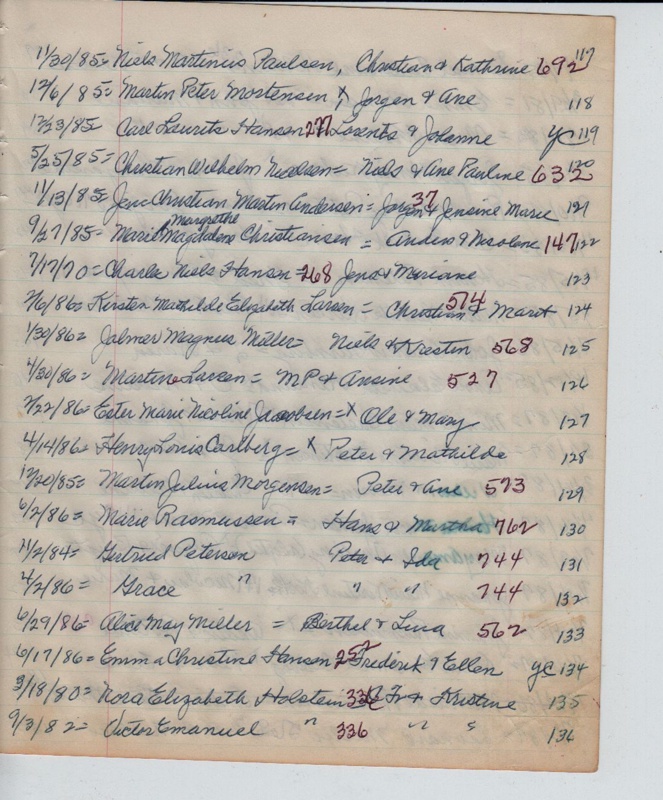 11/30/85= Niels Martinius Paulsen, Christian & Kathrine 692 117
12/6/85= Martin Peter Mortensen X Jorgen & Ane 118
12/23/85 Carl Laurits Hansen 277 Lorents & Johanne yc 119
5/25/85= Christian Wilhelm Nielsen= Niels & Ane Pauline 632 120
11/13/85= Jens Christian Martin Andersen= Jorgen 37 & Jensine Marie 121
Margrethe
9/27/85= Marie Magdalene Christiansen = Anders & 147 122
7/17/70= Charle Niels Hansen = 268 Jens & Mariane 123
2/6/86= Kirsten Mathilde Elizabeth Larsen= Christian 574 & Marit 124
1/30/86= Jalmer Magnus Miller= Niels & Kirstin 568 125
4/30/86= Martine Larsen = MP & Ansine 527 126
2/22/86= Ester Marie Nicoline Jacobsen= X Ole & Mary 127
4/14/86= Henry Louis Carlberg= X Peter & Mathilde 128
12/20/85= Martin Julius Morgensen= Peter & Ane 573 129
6/2/86= Marie Rasmussen = Hans & Martha 762 130
4/2/84= Gertrud Petersen Peter & Ida 744 131
4/2/86= Grace " " " 744 132
6/29/86= Alice May Miller = Berthel & Lina 562 133
6/17/86= Emma Christine Hansen 252 Frederik & Ellen yc 134
3/18/80= Nora Elizabeth Holstein 336 Fr & Kristine 135
9/13/82= Victor Emanuel " 336 " " 136